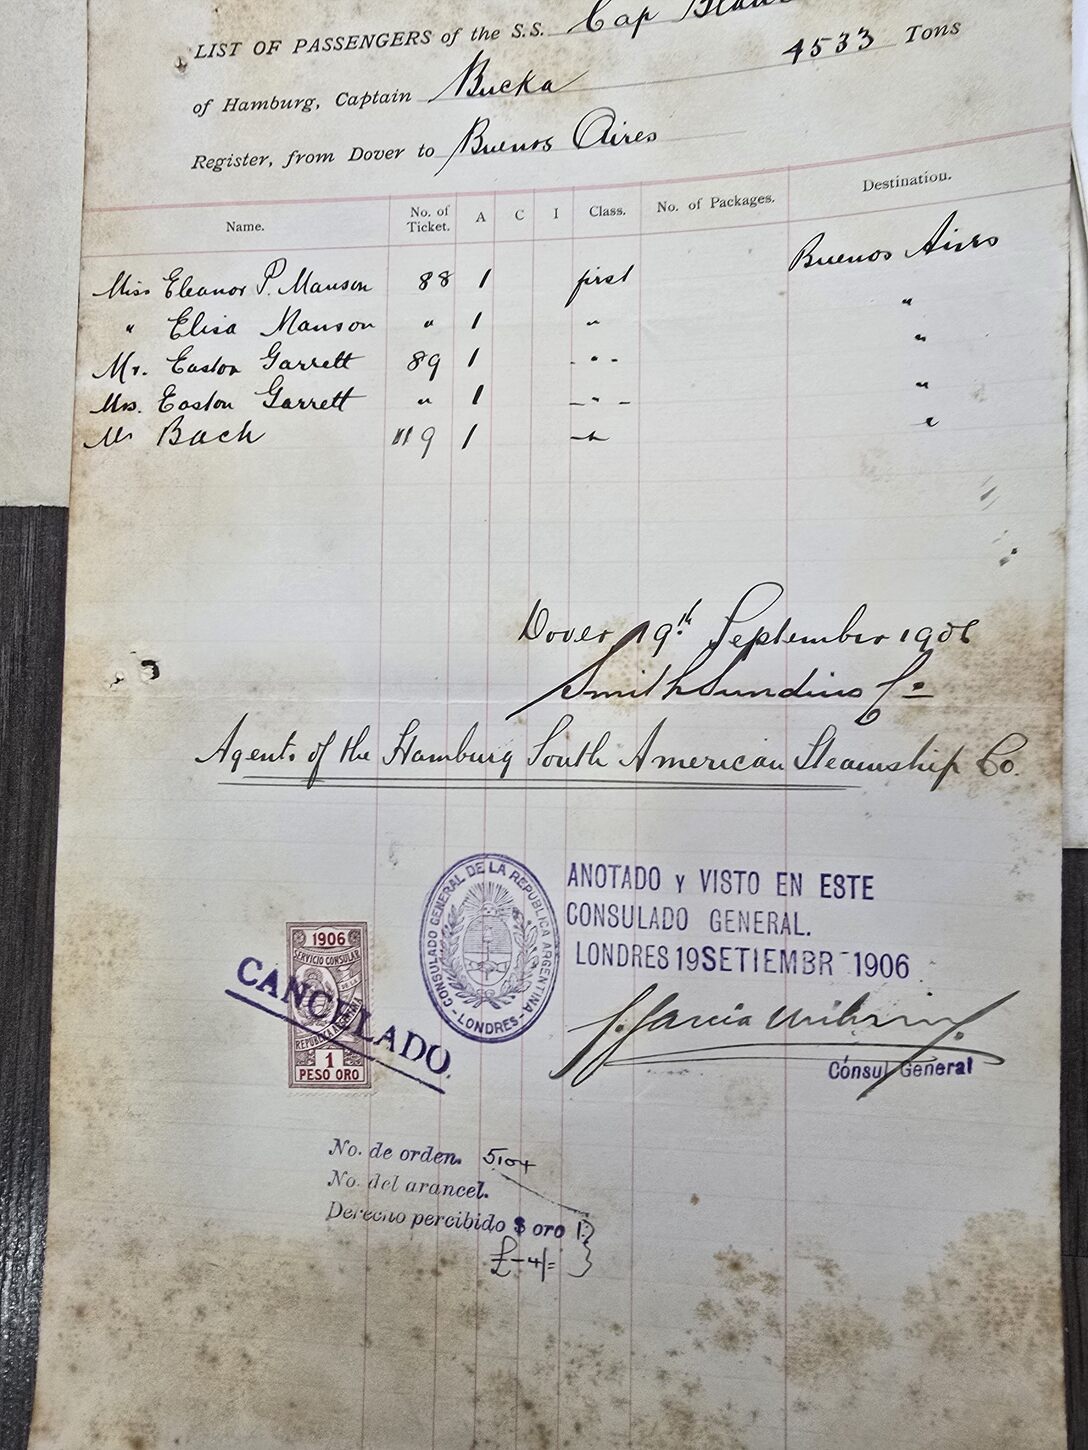 LIST OF PASSENGERS of the S.S. Cap
4533 Tons
of Hamburg, Captain Bucka
Register, from Dover to Buenos Aires
Name. No. of Ticket. A C I Class. No. of Packages. Destination.
Miss Eleanor P. Manson 88 1 first Buenos Aires
" Elisa Manson " 1 " "
Mr. Easton Garrett 89 1 - " - "
Mrs. Easton Garrett " 1 - " - "
Mr Bach 119 1 - " - "
Dover 19th September 1906
Smith Sundius Co
Agents of the Hamburg South American Steamship Co.
CONSULADO GENERAL DE LA REPUBLICA ARGENTINA
- LONDRES -
ANOTADO Y VISTO EN ESTE
CONSULADO GENERAL.
LONDRES 19 SETIEMBR 1906
Cónsul General
1906
SERVICIO CONSULAR
DE LA
REPUBLICA ARGENTINA
1
PESO ORO
CANCELADO.
No. de orden. 5104
No. del arancel.
Derecho percibido $ oro 1.
£-4/=